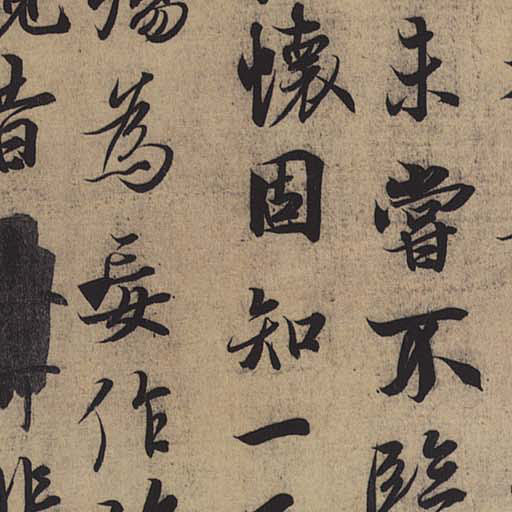 未嘗不臨
懷固知一
殤為妄作
昔